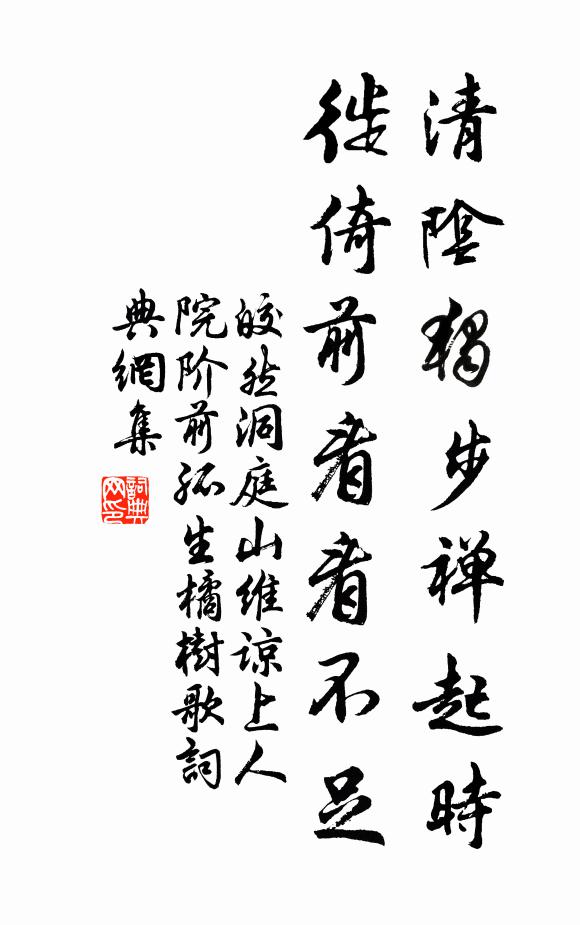 清陰獨步禅起時
徙倚前看看不足
皎然洞庭山維諒上人
院阶前孤生橘樹歌詞
典網集
詞典
网印